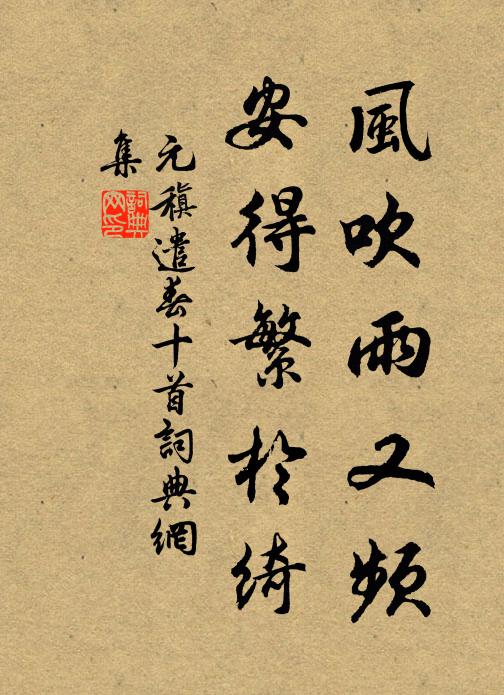 風吹雨又頻
安得繁於綺
元稹遣春十首詞典網
集
詞典
网印